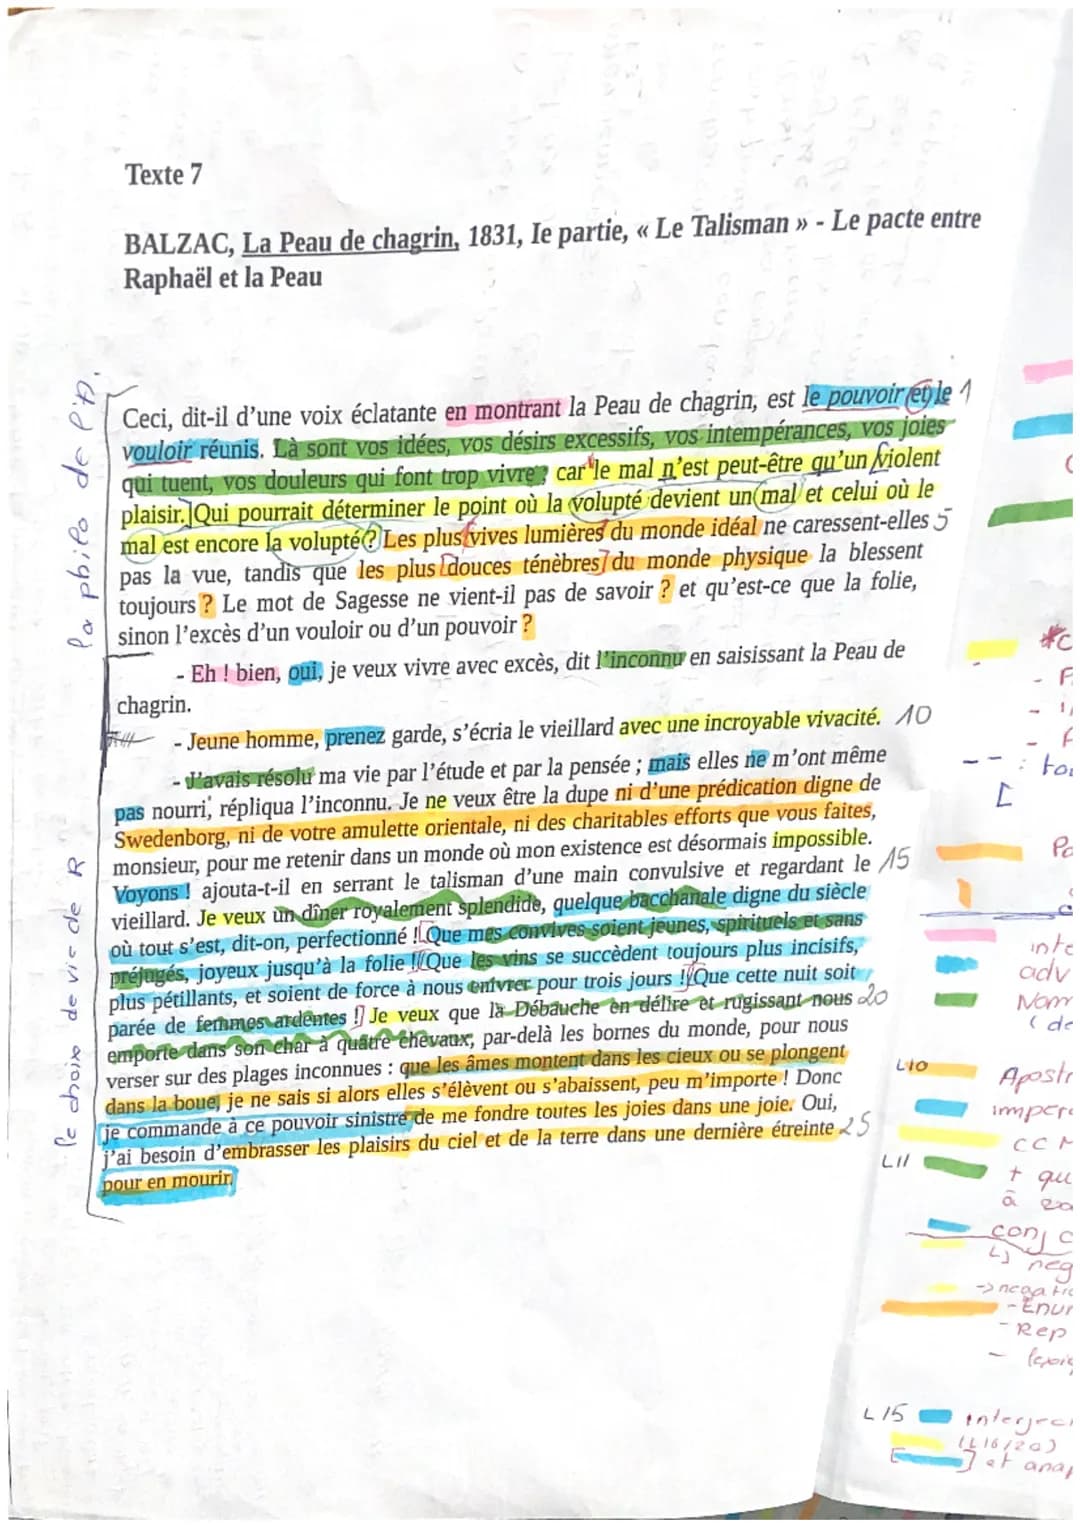 Texte 7
BALZAC, La Peau de chagrin, 1831, Ie partie, « Le Talisman » - Le pacte entre
Raphaël et la Peau
Ceci, dit-il d'une voix éclatante en montrant la Peau de chagrin, est le pouvoir et le 1
vouloir réunis. Là sont vos idées, vos désirs excessifs, vos intempérances, vos joies
qui tuent, vos douleurs qui font trop vivre ; car le mal n'est peut-être qu'un violent
plaisir. Qui pourrait déterminer le point où la volupté devient un mal et celui où le
mal est encore la volupté ? Les plus vives lumières du monde idéal ne caressent-elles 5
pas la vue, tandis que les plus douces ténèbres du monde physique la blessent
toujours ? Le mot de Sagesse ne vient-il pas de savoir ? et qu'est-ce que la folie,
sinon l'excès d'un vouloir ou d'un pouvoir ?
- Eh ! bien, oui, je veux vivre avec excès, dit l'inconnu en saisissant la Peau de
chagrin.
- Jeune homme, prenez garde, s'écria le vieillard avec une incroyable vivacité. 10
- J'avais résolu ma vie par l'étude et par la pensée ; mais elles ne m'ont même
pas nourri, répliqua l'inconnu. Je ne veux être la dupe ni d'une prédication digne de
Swedenborg, ni de votre amulette orientale, ni des charitables efforts que vous faites,
monsieur, pour me retenir dans un monde où mon existence est désormais impossible.
Voyons ! ajouta-t-il en serrant le talisman d'une main convulsive et regardant le 15
vieillard. Je veux un dîner royalement splendide, quelque bacchanale digne du siècle
où tout s'est, dit-on, perfectionné ! Que mes convives soient jeunes, spirituels et sans
préjugés, joyeux jusqu'à la folie ! Que les vins se succèdent toujours plus incisifs,
plus pétillants, et soient de force à nous enivrer pour trois jours ! Que cette nuit soit
parée de femmes ardentes ! Je veux que la Débauche en délire et rugissant nous 20
emporte dans son char à quatre chevaux, par-delà les bornes du monde, pour nous
verser sur des plages inconnues : que les âmes montent dans les cieux ou se plongent
dans la boue, je ne sais si alors elles s'élèvent ou s'abaissent, peu m'importe ! Donc
je commande à ce pouvoir sinistre de me fondre toutes les joies dans une joie. Oui,
j'ai besoin d'embrasser les plaisirs du ciel et de la terre dans une dernière étreinte 25
pour en mourir.
la philo de
le choix de vie de R
inte
adv
Nom
L10
Apostr
imper
CCM
L11
+ qu
à
conj c
neg
negati
- Enur
- Rep
L15
interjec
(L16/20)
et anap